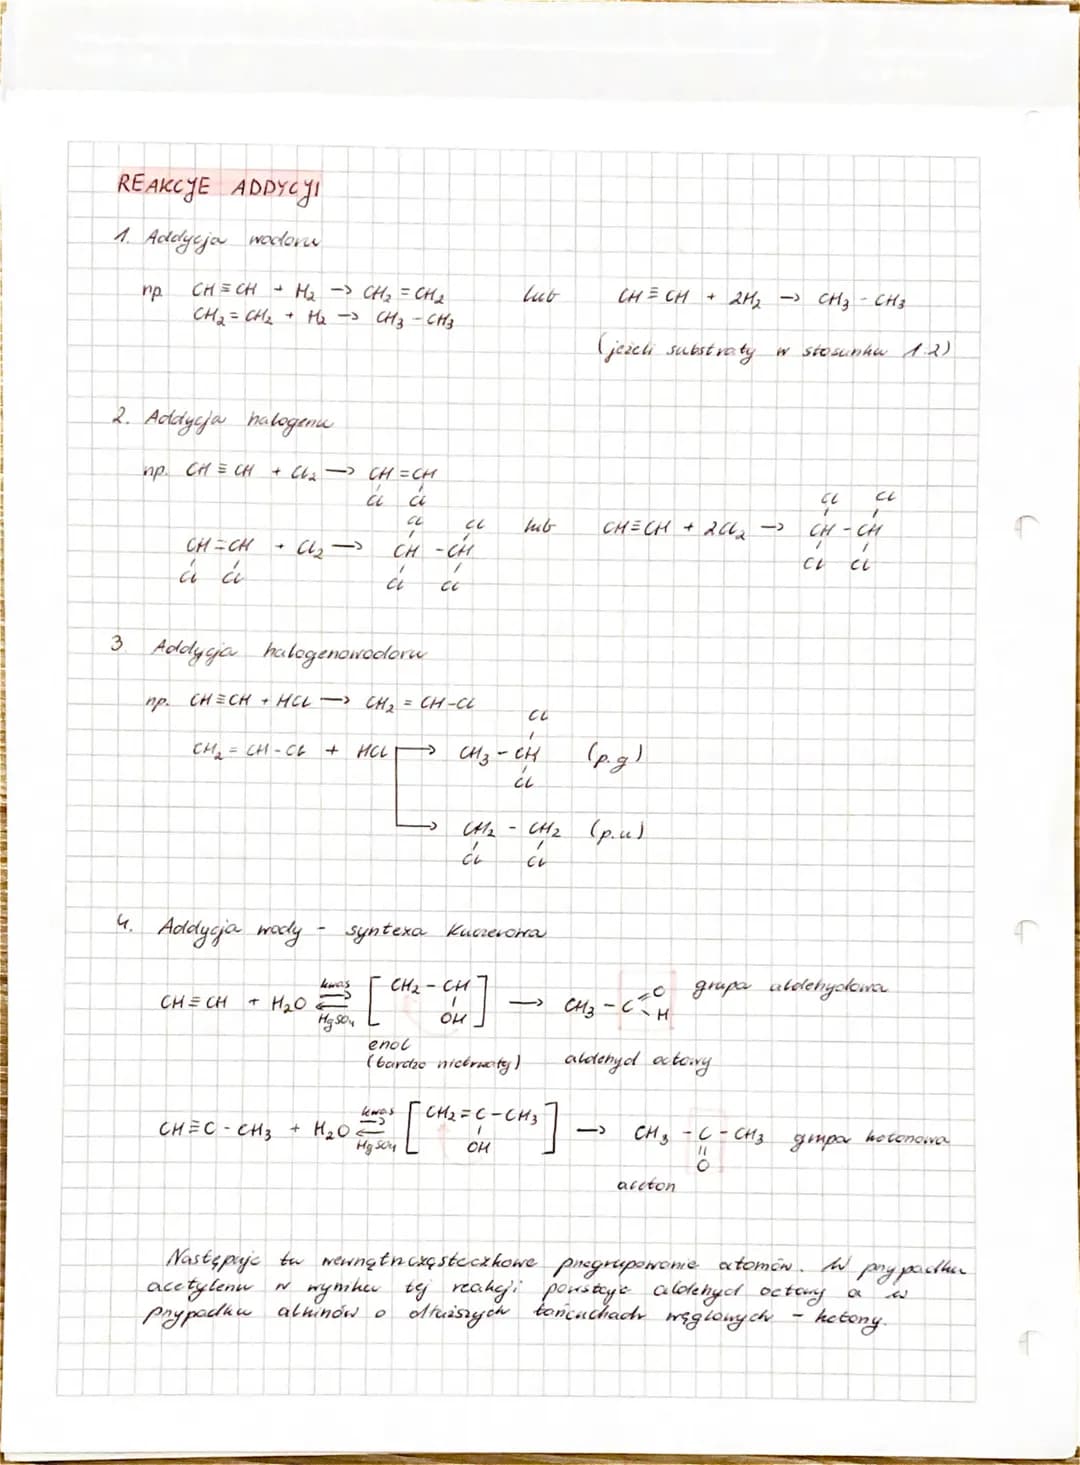 REAKCJE ADDYCJI
1. Addycja wodoru
np. CH≡CH + H₂ → CH₂=CH₂ lub CH≡CH + 2H₂ → CH₃-CH₃
CH₂=CH₂ + H₂ → CH₃-CH₃
(jeżeli substraty w stosunku 1:2)
2. Addycja halogenu
np. CH≡CH + Cl₂ → CH=CH
Cl Cl
Cl Cl
Cl Cl lub CH≡CH + 2Cl₂ → CH-CH
CH=CH + Cl₂ → CH-CH
Cl Cl
Cl Cl Cl Cl
3. Addycja halogenowodoru
np. CH≡CH + HCl → CH₂=CH-Cl
Cl
CH₂=CH-Cl + HCl → CH₃-CH (p.g)
Cl
→ CH₂-CH₂ (p.u)
Cl Cl
4. Addycja wody - synteza Kuczerowa
kwas
CH≡CH + H₂O ⇄ [CH₂-CH] → CH₃-C=O grupa aldehydowa
HgSO₄ OH H
enol
(bardzo nietrwały) aldehyd octowy
kwas
CH≡C-CH₃ + H₂O ⇄ [CH₂=C-CH₃] → CH₃-C-CH₃ grupa ketonowa
HgSO₄ OH O
aceton
Następuje tu wewnątrzcząsteczkowe przegrupowanie atomów. W przypadku
acetylenu w wyniku tej reakcji powstaje aldehyd octowy a w
przypadku alkinów o dłuższych łańcuchach węglowych - ketony.